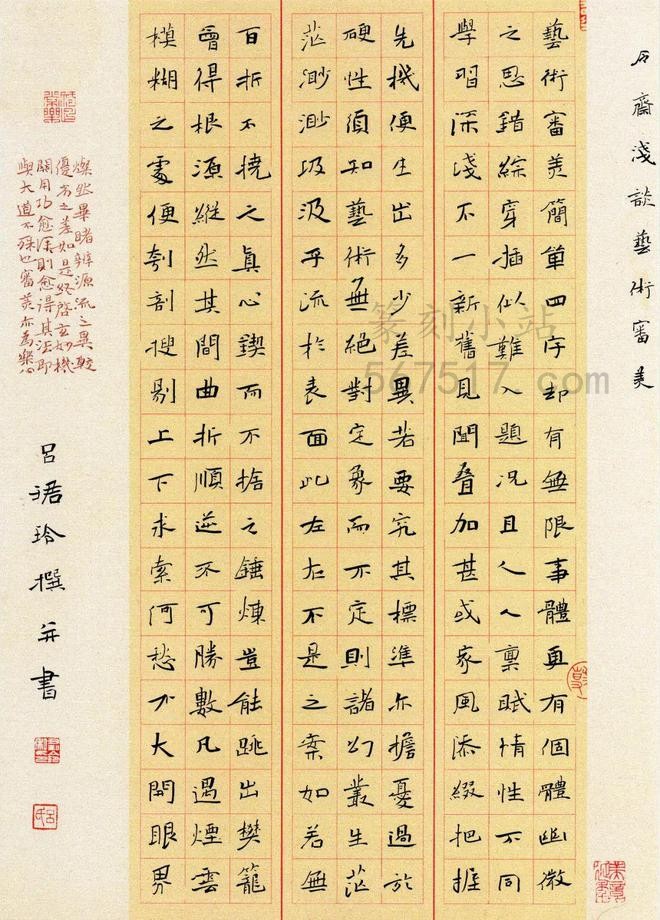 石齋淺談藝術審美
藝術審美簡單四字却有無限事體更有個體幽微
之思錯綜穿插似難入題况且人人禀賦情性不同
學習深淺不一新舊見聞疊加甚或家風添綴把握
先機便生出多少差異若要究其標準亦擔憂過於
硬性須知藝術無絕對定象而不定則諸幻叢生茫
茫渺渺圾汲乎流於表面此左右不是之案如若無
百折不撓之真心鍥而不捨之錘煉豈能跳出樊籠
曾得根源縱然其間曲折順逆不可勝數凡遇煙雲
模糊之處便刳剖搜剔上下求索何愁不大開眼界
燦然畢睹辨源流之異較
優劣之差如是終啓玄妙機
關用功愈深則愈得其法即
與大道不殊也審美亦爲樂
呂珺玲撰并書
篆刻小站
567517.com